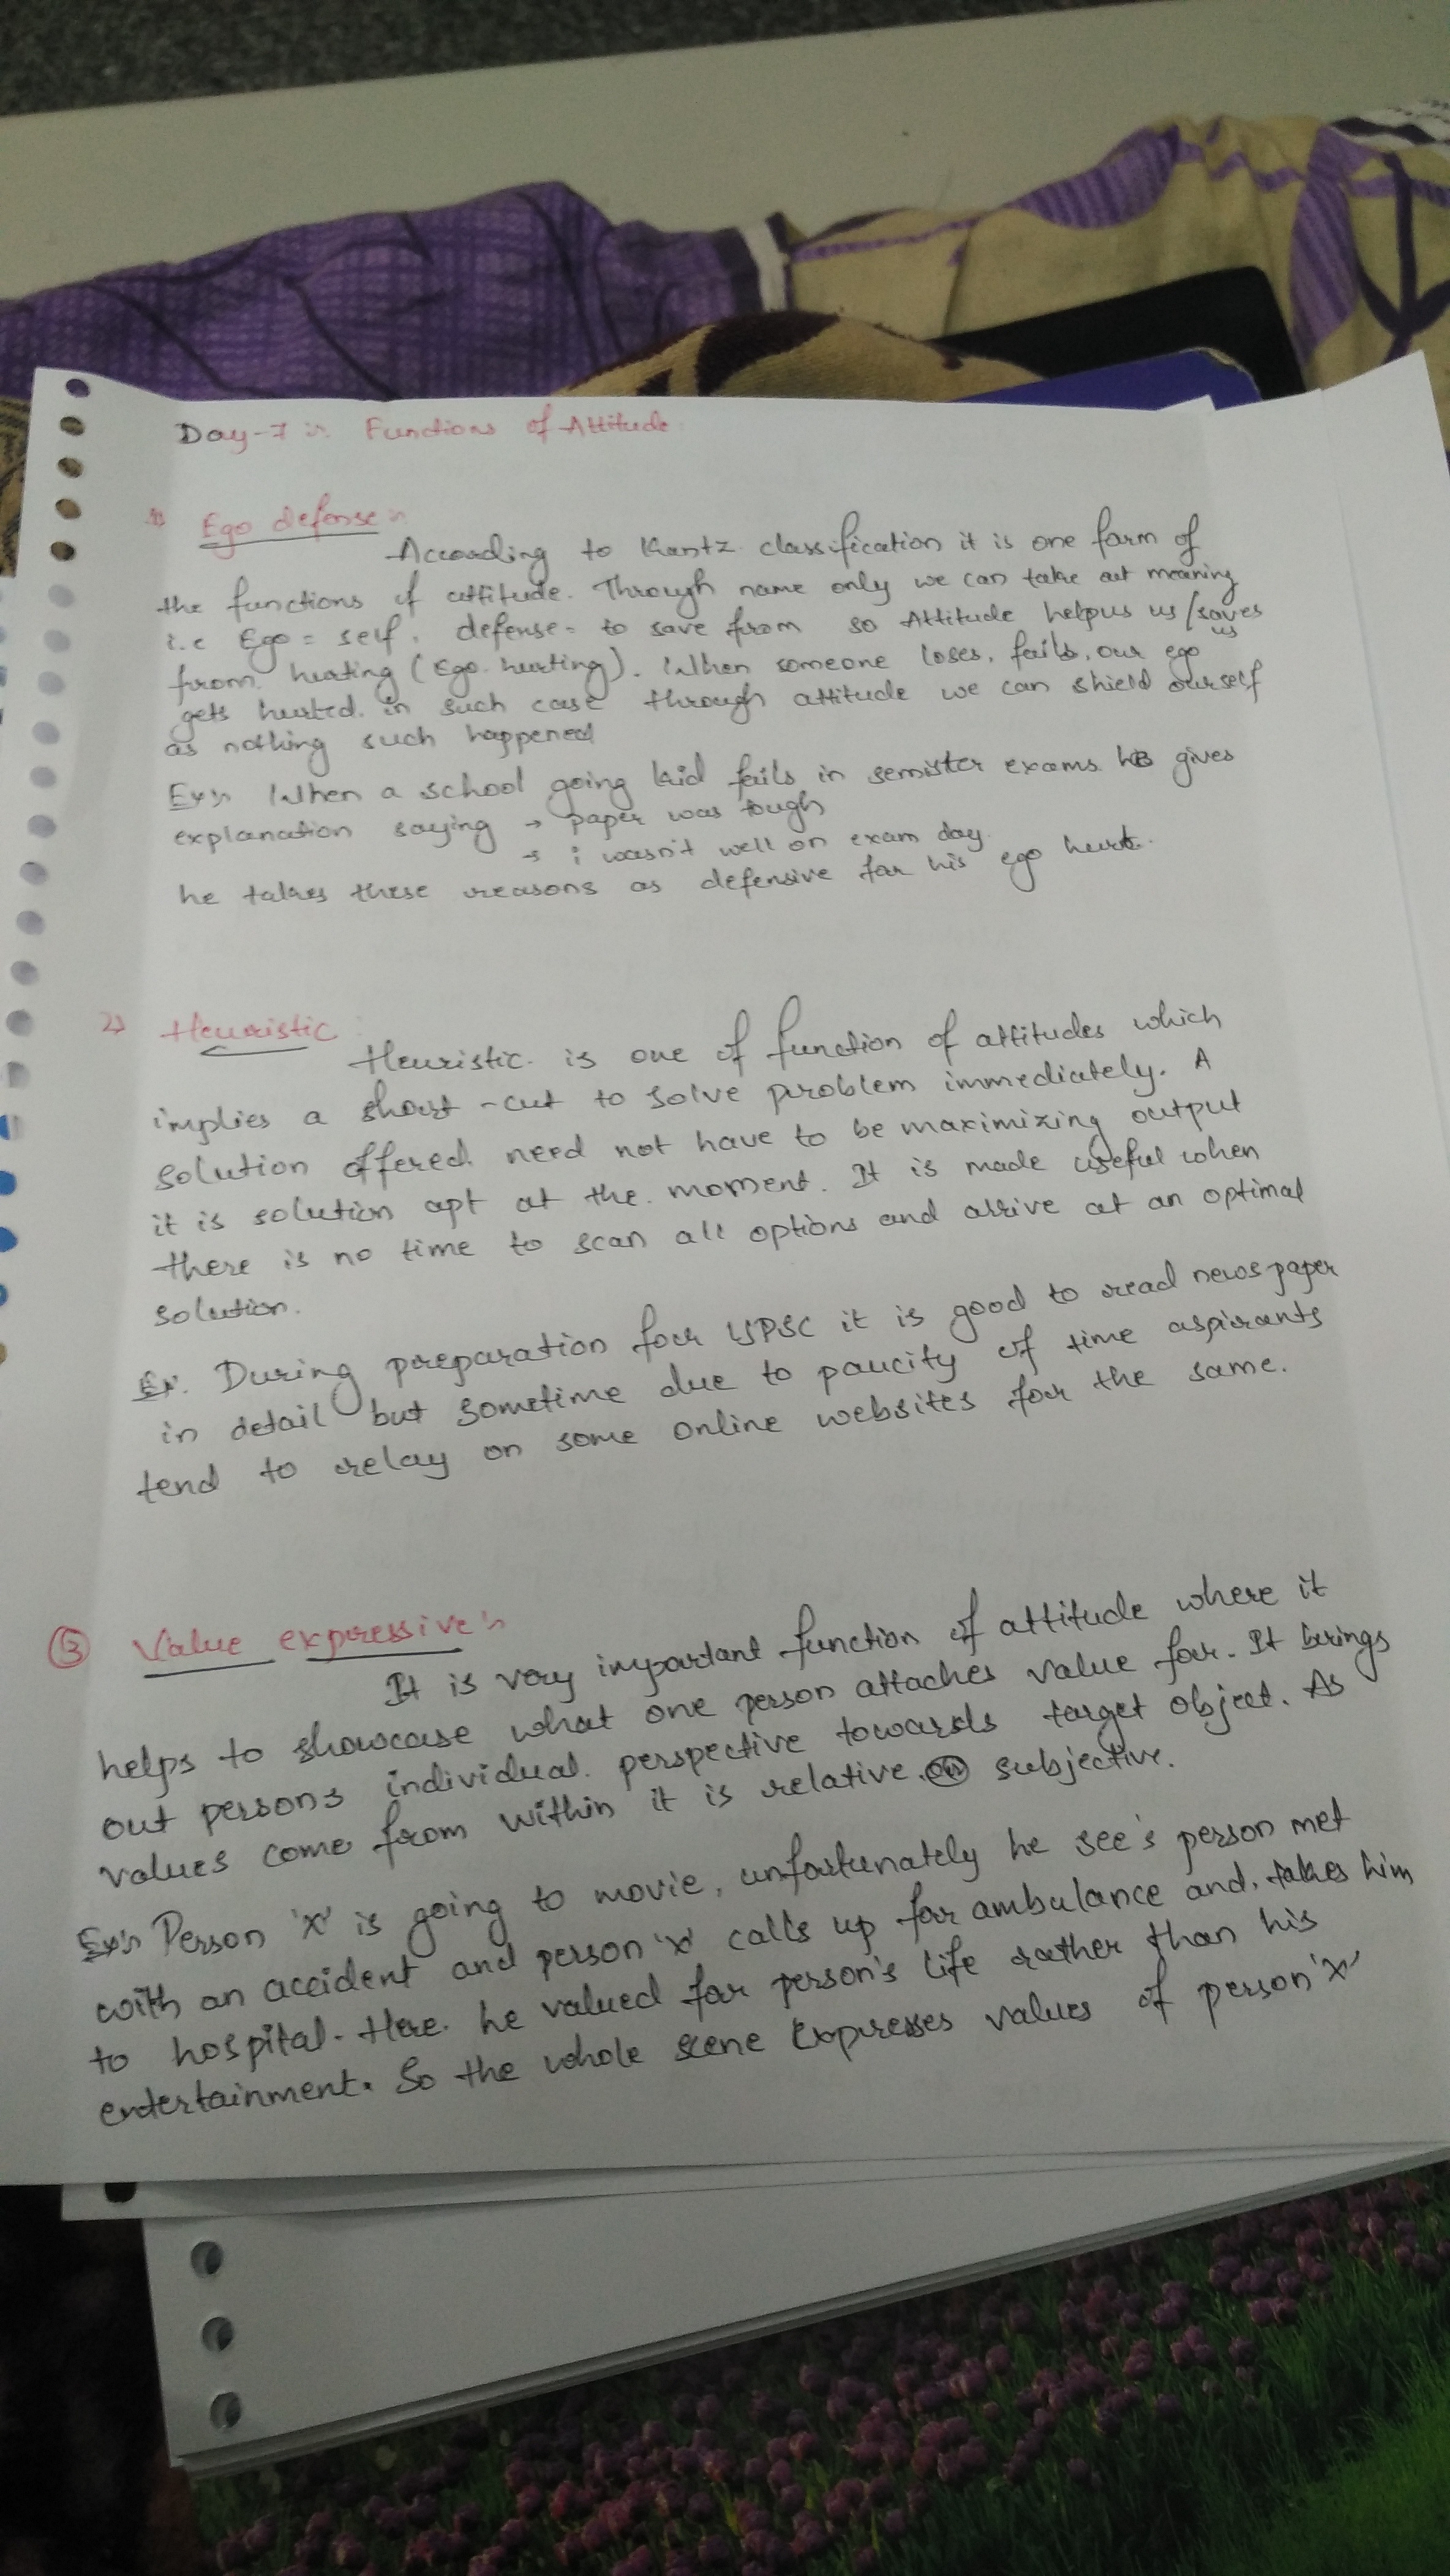 Day-7 :- Functions of Attitude
1) Ego defense :-
According to Kantz classification it is one form of
the functions of attitude. Through name only we can take out meaning
i.e Ego = self, defense = to save from so Attitude helpus us/saves
us
from hurting (Ego hurting). When someone loses, fails, our ego
gets hurted. in such case through attitude we can shield ourself
as nothing such happened
Ex:- When a school going kid fails in semister exams. he gives
explanation saying → paper was tough
→ i wasn't well on exam day.
he takes these reasons as defensive for his ego hurt.
2) Heuristic :
Heuristic is one of function of attitudes which
implies a short-cut to solve problem immediately. A
solution offered need not have to be maximizing output
it is solution apt at the moment. It is made useful when
there is no time to scan all options and arrive at an optimal
solution.
Ex. During preparation for UPSC it is good to read newspaper
in detail but sometime due to paucity of time aspirants
tend to relay on some online websites for the same.
③ Value expressive :-
It is very important function of attitude where it
helps to showcase what one person attaches value for. It brings
out persons individual perspective towards target object. As
values come from within it is relative. subjective.
Ex:- Person 'x' is going to movie, unfortunately he see's person met
with an accident and person 'x' calls up for ambulance and, takes him
to hospital. Here he valued for person's life rather than his
entertainment. So the whole scene expresses values of person 'x'